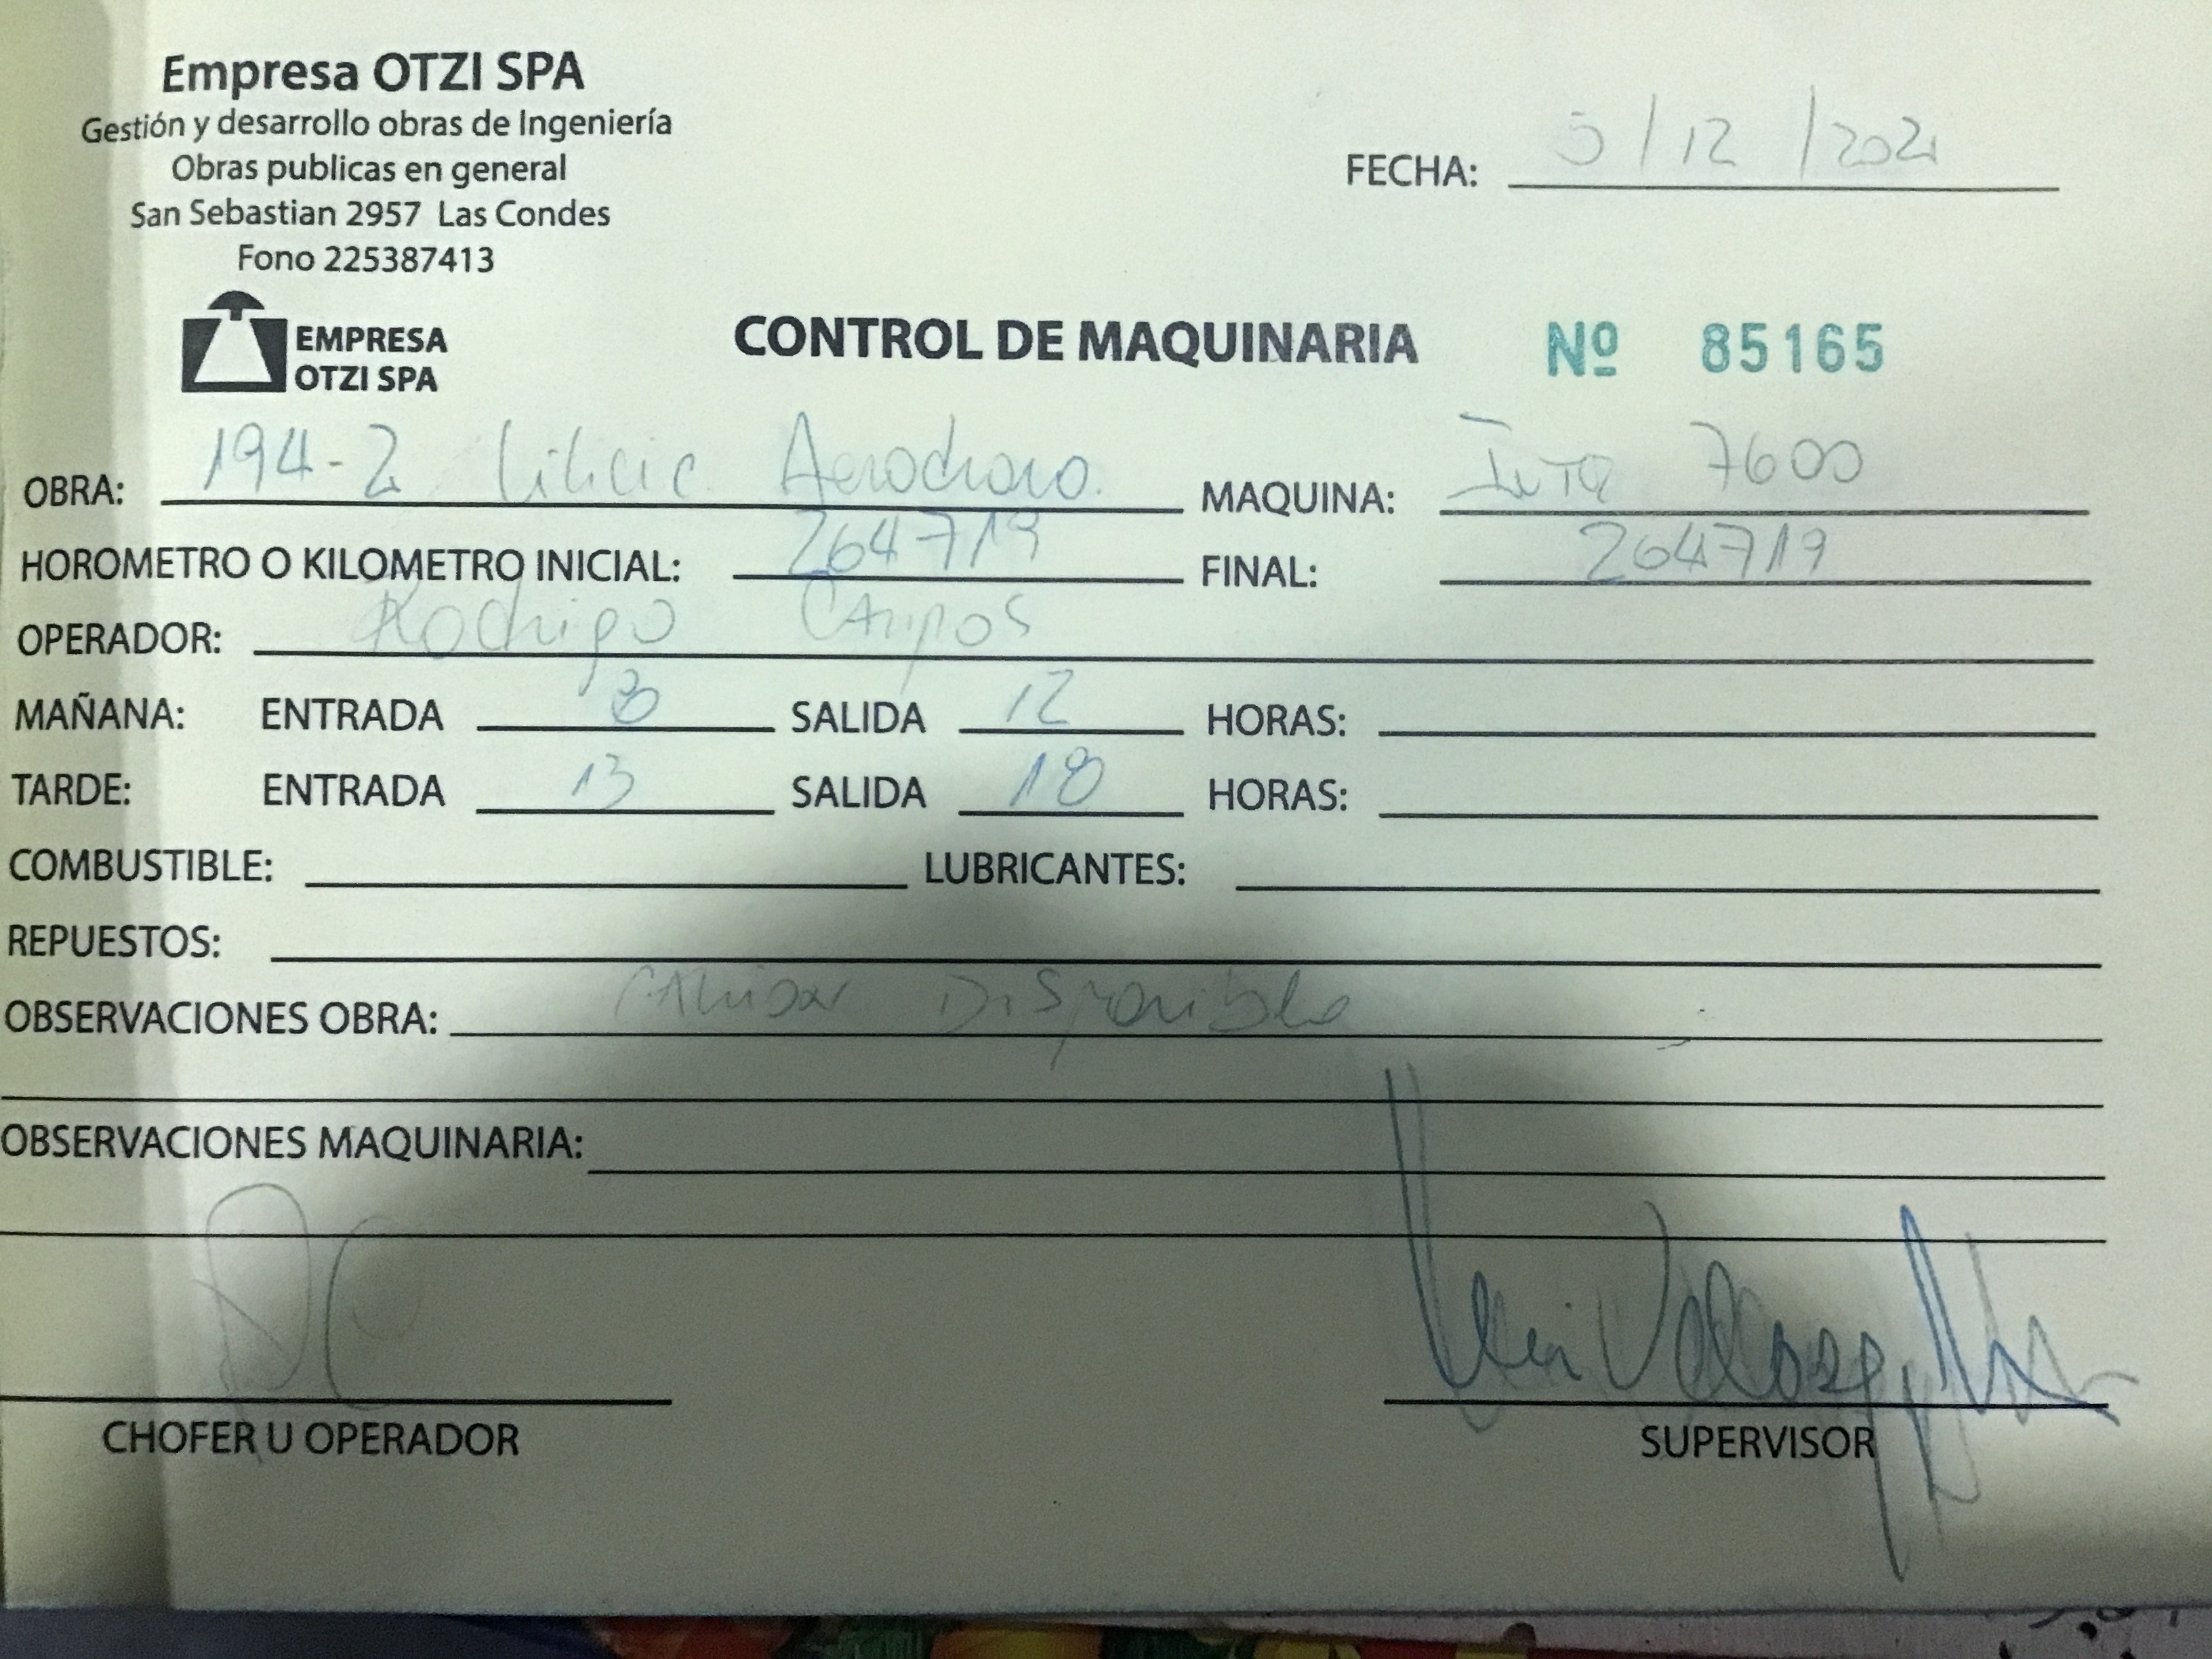 Empresa OTZI SPA
Gestión y desarrollo obras de Ingeniería
Obras publicas en general
San Sebastian 2957 Las Condes
Fono 225387413
FECHA: 5/12/2021
EMPRESA
OTZI SPA
CONTROL DE MAQUINARIA Nº 85165
OBRA: 194-2 Aerodromo. MAQUINA: 7600
HOROMETRO O KILOMETRO INICIAL: 264719 FINAL: 264719
OPERADOR: Rodrigo Campos
MAÑANA: ENTRADA 8 SALIDA 12 HORAS:
TARDE: ENTRADA 13 SALIDA 18 HORAS:
COMBUSTIBLE: LUBRICANTES:
REPUESTOS:
OBSERVACIONES OBRA: Camion Disponible
OBSERVACIONES MAQUINARIA:
CHOFER U OPERADOR SUPERVISOR